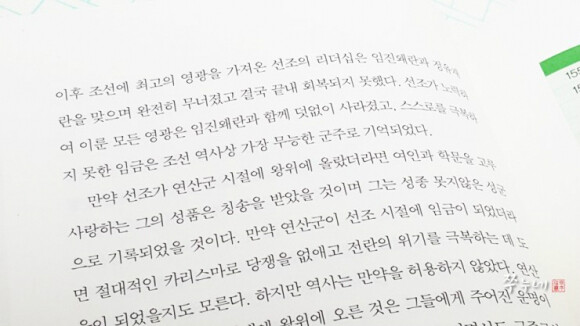 이후 조선에 최고의 영광을 가져온 선조의 리더십은 임진왜란과 정유재
란을 맞으며 완전히 무너졌고 결국 끝내 회복되지 못했다. 선조가 노력하
여 이룬 모든 영광은 임진왜란과 함께 덧없이 사라졌고, 스스로를 극복하
지 못한 임금은 조선 역사상 가장 무능한 군주로 기억되었다.
만약 선조가 연산군 시절에 왕위에 올랐더라면 여인과 학문을 고루
사랑하는 그의 성품은 칭송을 받았을 것이며 그는 성종 못지않은 성군
으로 기록되었을 것이다. 만약 연산군이 선조 시절에 임금이 되었더라
면 절대적인 카리스마로 당쟁을 없애고 전란의 위기를 극복하는 데 도
움이 되었을지도 모른다. 하지만 역사는 만약을 허용하지 않았다. 연산
왕위에 오른 것은 그들에게 주어진 운명이
155
1